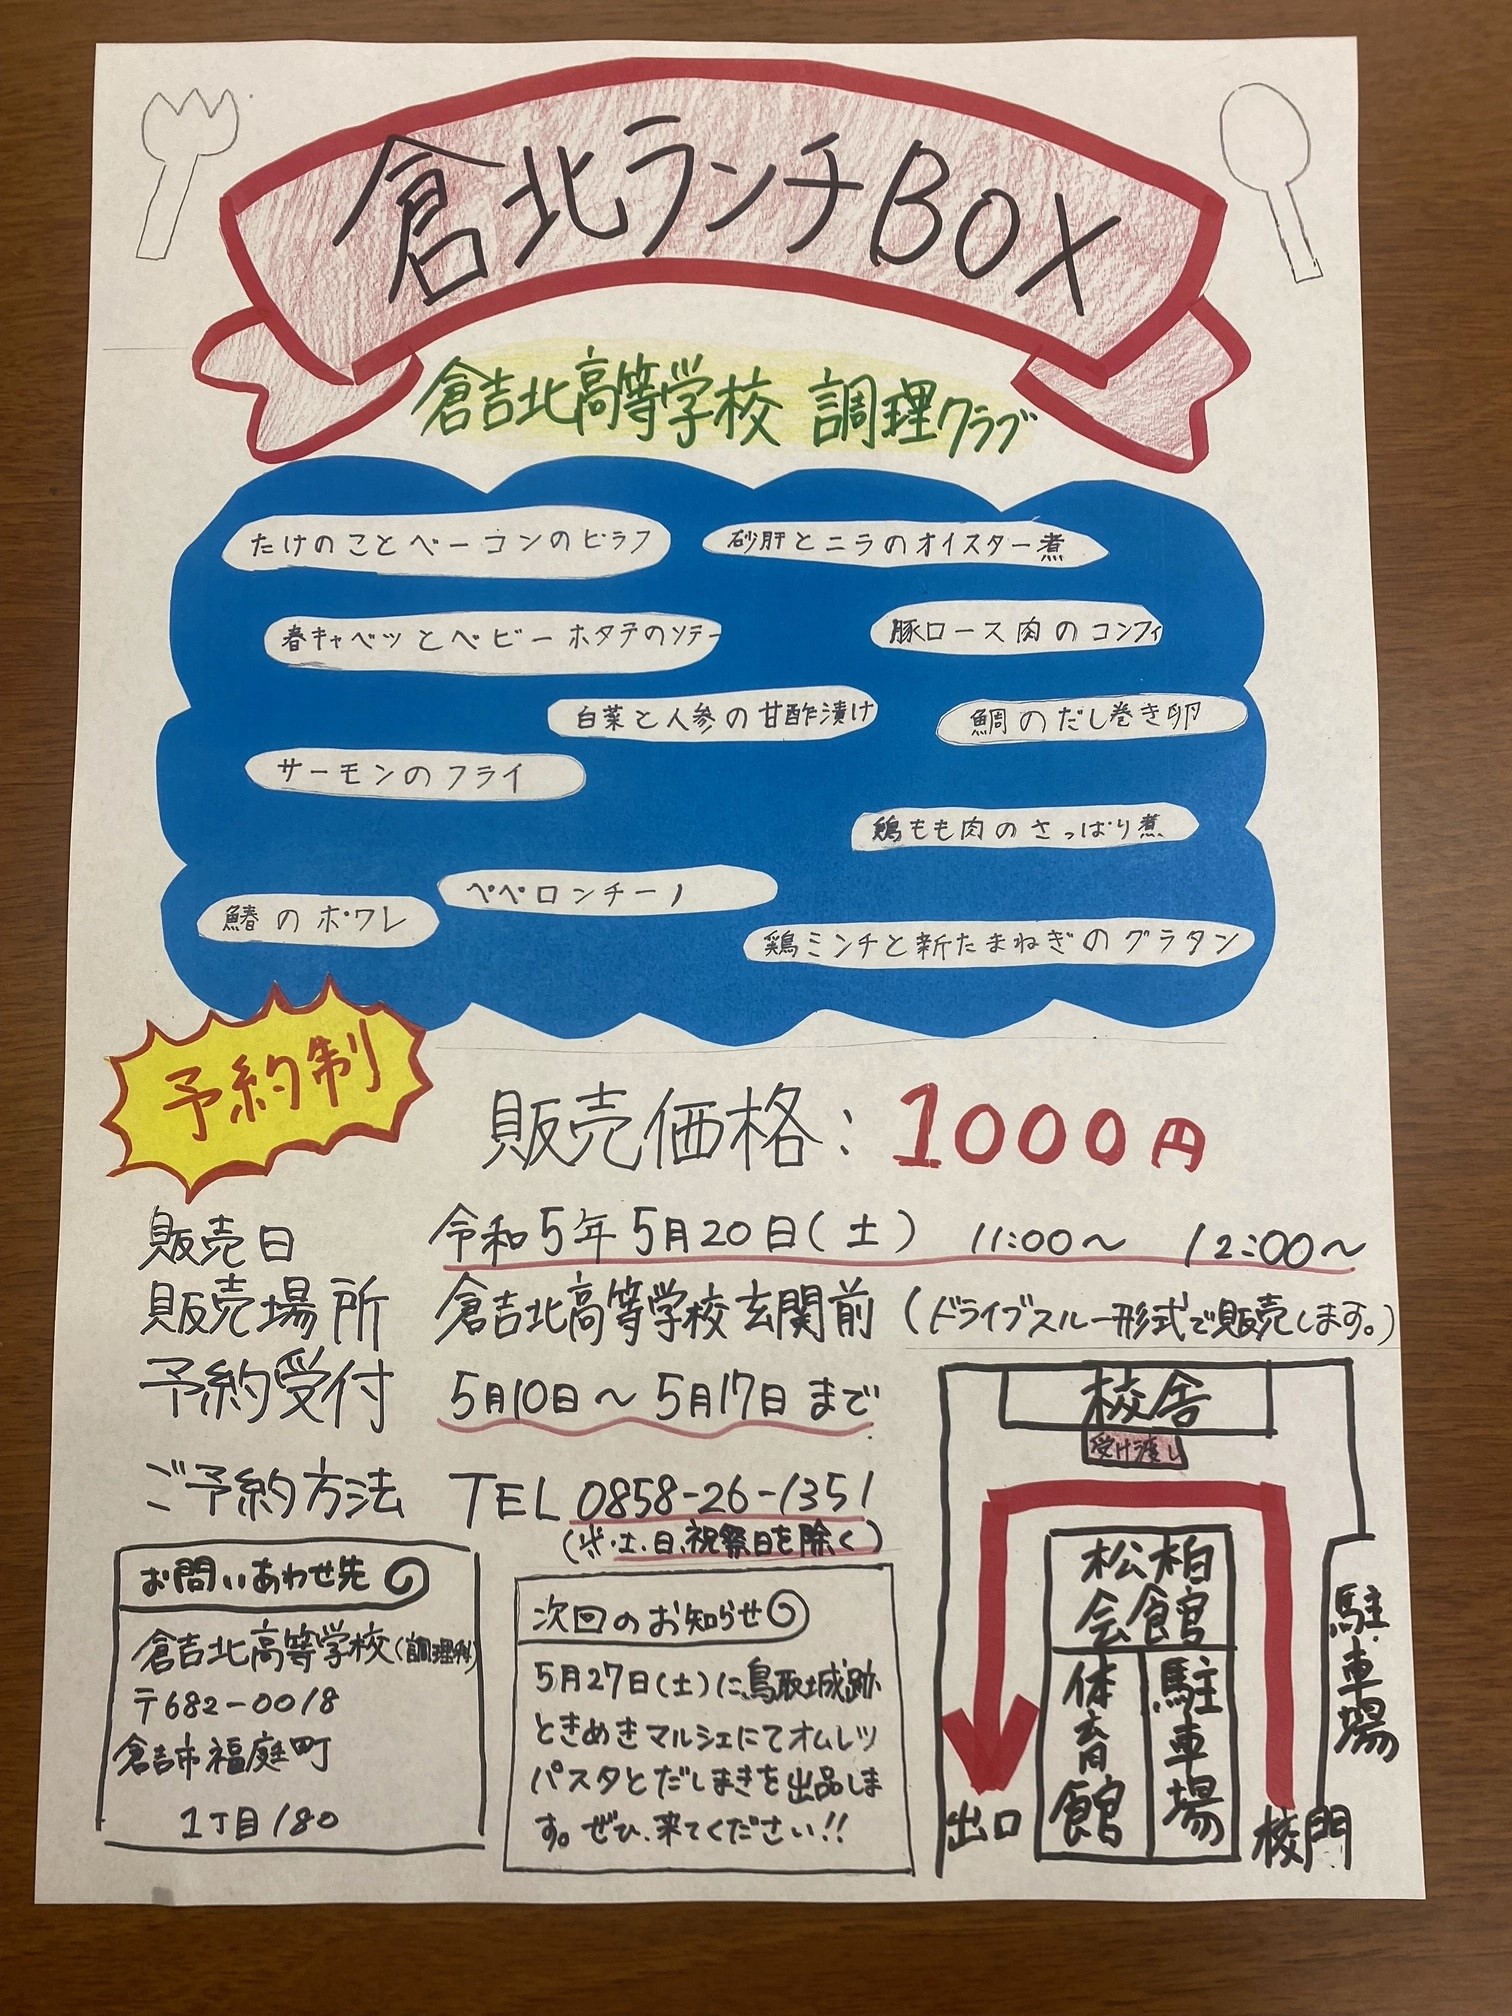 倉北ランチBOX
倉吉北高等学校 調理クラブ
たけのことベーコンのピラフ
砂肝とニラのオイスター煮
春キャベツとベビーホタテのソテー
豚ロース肉のコンフィ
白菜と人参の甘酢漬け
鯛のだし巻き卵
サーモンのフライ
鶏もも肉のさっぱり煮
ペペロンチーノ
鰆のポワレ
鶏ミンチと新たまねぎのグラタン
予約制
販売価格:1000円
販売日 令和5年5月20日(土) 11:00〜 12:00〜
販売場所 倉吉北高等学校玄関前(ドライブスルー形式で販売します。)
予約受付 5月10日〜5月17日まで
ご予約方法 TEL 0858-26-1351
(※土.日.祝祭日を除く)
お問いあわせ先
倉吉北高等学校(調理科)
〒682-0018
倉吉市福庭町
1丁目180
次回のお知らせ
5月27日(土)に、鳥取城跡
ときめきマルシェにてオムレツ
パスタとだしまきを出品しま
す。ぜひ、来てください!!
校舎
受け渡し
松柏
会館
体育館
駐車場
駐車場
出口
校門